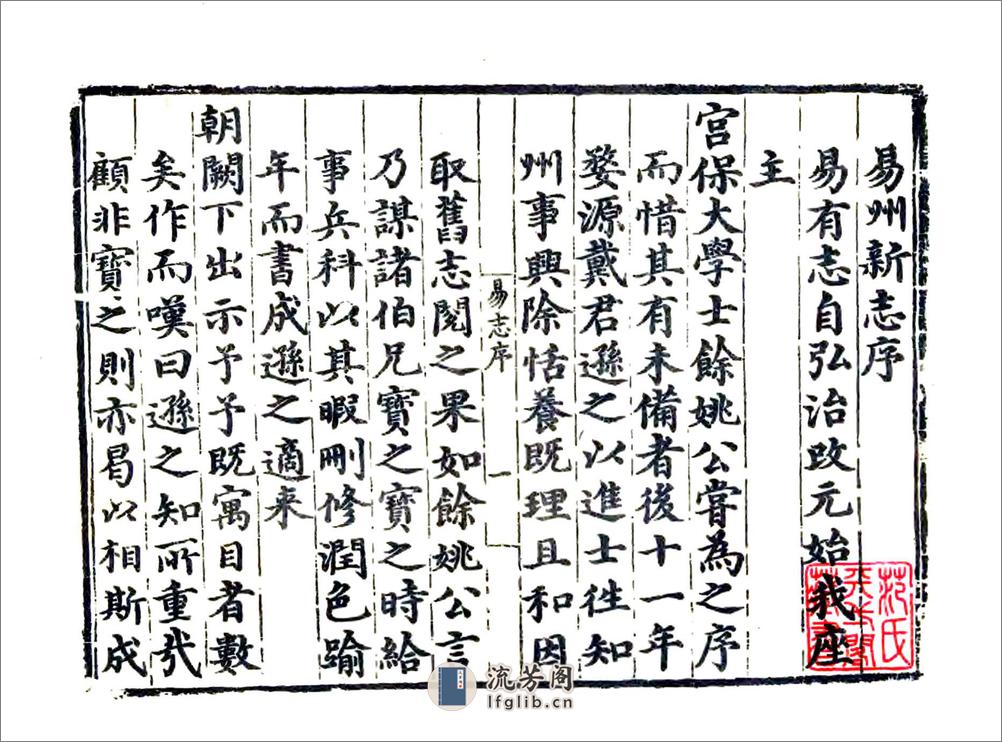 易州新志序
易有志自弘治改元始我座
主
宫保大學士餘姚公嘗為之序
而惜其有未備者後十一年
婺源戴君遜之以進士徃知
州事興除恬養既理且和因
易志序
一
取舊志閱之果如餘姚公言
乃謀諸伯兄寶之寶之時給
事兵科以其暇刪修潤色踰
年而書成遜之適来
朝闕下出示予予既寓目者數
矣作而嘆曰遜之知所重㢤
顧非寶之則亦曷以相斯成
范氏
天一閣
藏書
流芳阁
lfglib.cn